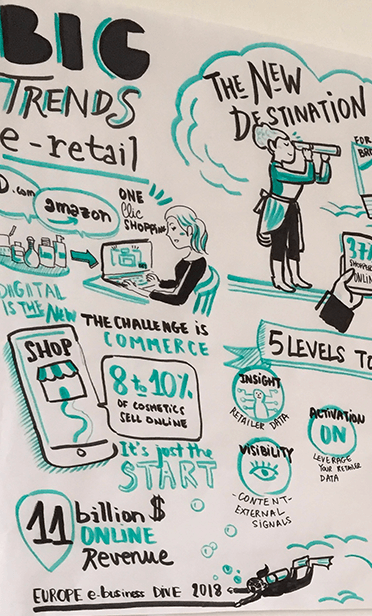 BIG
TRENDS
e-retail
D.com
amazon
ONE
Clic
SHOPPING
DIGITAL
IS THE NEW
THE CHALLENGE IS
COMMERCE
SHOP
8 to 10%
OF COSMETICS
SELL ONLINE
It's just the
START
11 billion $
ONLINE
Revenue
EUROPE e.business DIVE 2018
THE NEW
DESTINATION
FOR
37
ONLINE
5 LEVELS TO
INSIGHT
RETAILER DATA
ACTIVATION
ON
LEVERAGE
YOUR RETAILER
DATA
VISIBILITY
-CONTENT-
EXTERNAL
SIGNALS